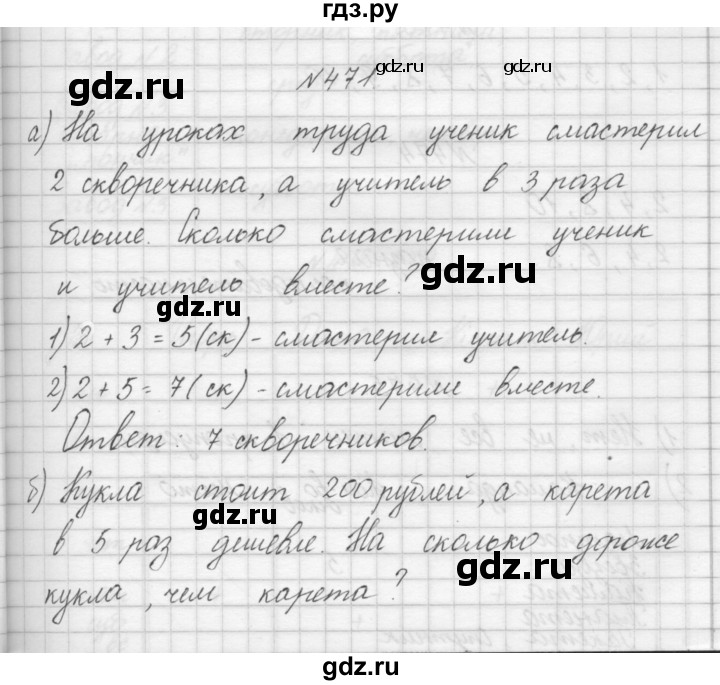 гдз.ру
№471.
gdz.ru
gdz.ru
а) На уроках труда ученик смастерил
2 скворечника, а учитель в 3 раза
больше. Сколько смастерили ученик
gdz.ru
и учитель вместе?
gdz.ru
1) 2 + 3 = 5 (ск) - смастерил учитель.
2) 2 + 5 = 7 (ск) - смастерили вместе.
Ответ: 7 скворечников.
б) Кукла стоит 200 рублей, а карета
gdz.ru
в 5 раз дешевле. На сколько дороже
gdz.ru
кукла, чем карета?
gdz.ru
gdz.ru